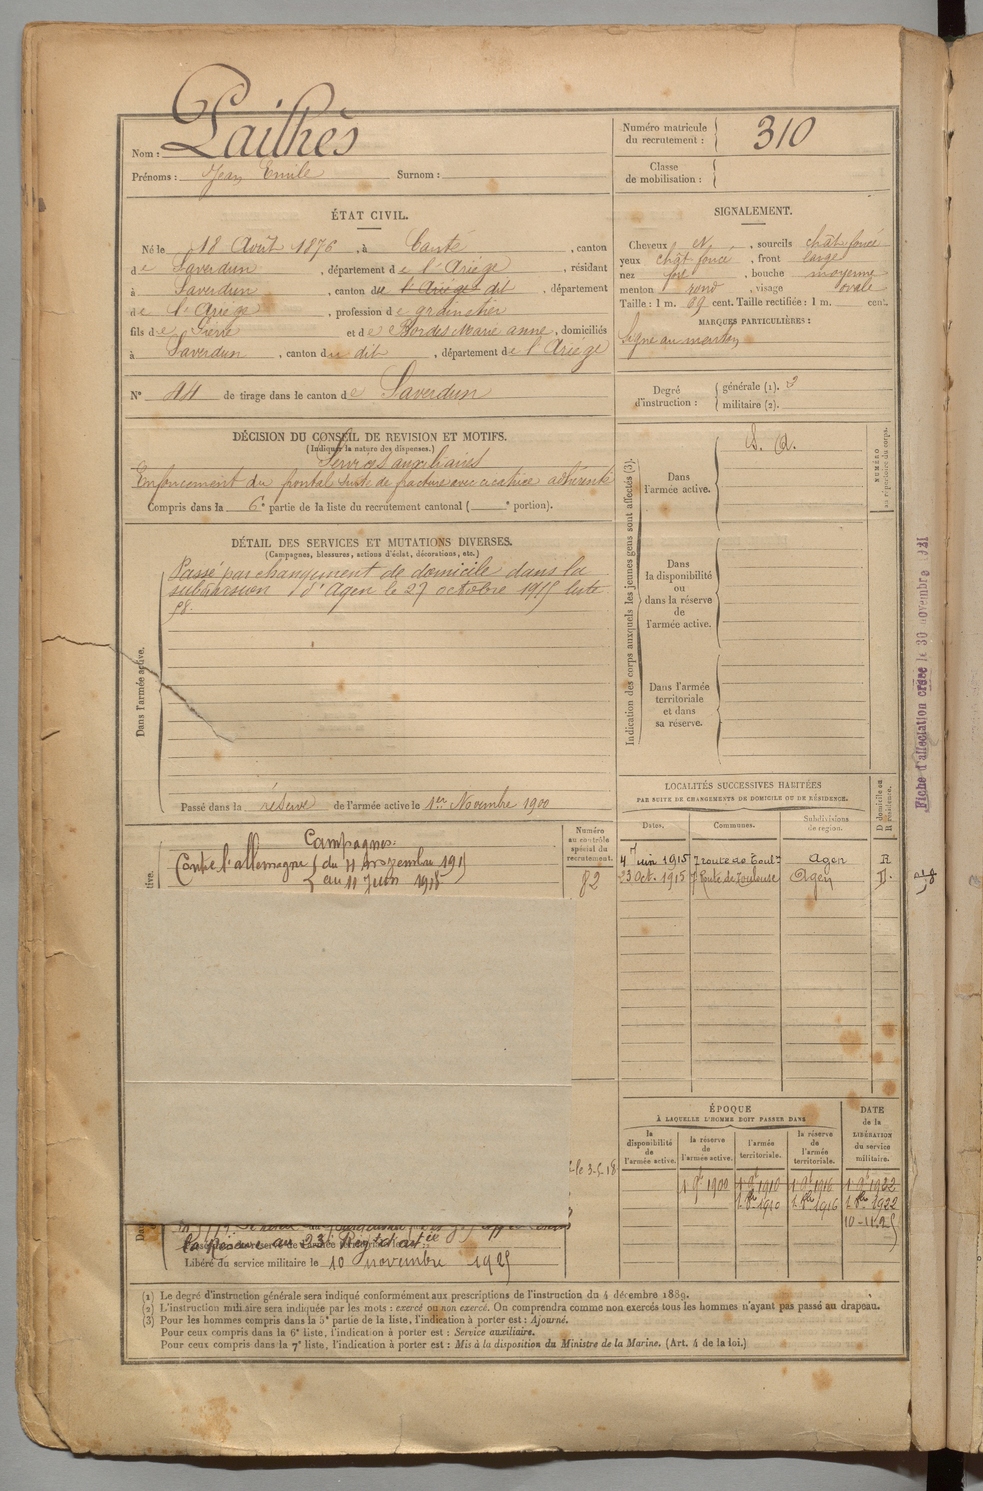 Nom : Pailhès
Prénoms : Jean Emile Surnom :
Numéro matricule du recrutement : 310
Classe de mobilisation :
ÉTAT CIVIL.
Né le 18 Août 1876, à Canté, canton
de Saverdun, département de l'Ariège, résidant
à Saverdun, canton du l'Ariège dit, département
de l'Ariège, profession de grainetier
fils de Pierre et de Bordes Marie anne, domiciliés
à Saverdun, canton du dit, département de l'Ariège
N° 44 de tirage dans le canton de Saverdun
SIGNALEMENT.
Cheveux N., sourcils chât foncé
yeux chât foncé, front large
nez fort, bouche moyenne
menton rond, visage ovale
Taille : 1 m. 69 cent. Taille rectifiée : 1 m. cent.
MARQUES PARTICULIÈRES :
Signe au menton
Degré d'instruction : générale (1). 3
militaire (2).
DÉCISION DU CONSEIL DE REVISION ET MOTIFS.
(Indiquer la nature des dispenses.)
Services auxiliaires
Enfoncement du frontal suite de fracture avec cicatrice adhérente
Compris dans la 6e partie de la liste du recrutement cantonal ( e portion).
DÉTAIL DES SERVICES ET MUTATIONS DIVERSES.
(Campagnes, blessures, actions d'éclat, décorations, etc.)
Dans l'armée active.
Passé par changement de domicile dans la
subdivision d'Agen le 27 octobre 1915 liste
98.
Passé dans la réserve de l'armée active le 1er Novembre 1900
Indication des corps auxquels les jeunes gens sont affectés (3).
NUMÉRO au répertoire du corps.
Dans l'armée active.
S. A.
Dans la disponibilité ou dans la réserve de l'armée active.
Dans l'armée territoriale et dans sa réserve.
Fiche d'affectation créée le 30 novembre
Campagnes:
Contre l'allemagne du 11 novembre 191
au 11 Juin 1918
Numéro au contrôle spécial du recrutement.
82
LOCALITÉS SUCCESSIVES HABITÉES
PAR SUITE DE CHANGEMENTS DE DOMICILE OU DE RÉSIDENCE.
Dates. Communes. Subdivisions de région. D domicile ou R résidence.
4 Juin 1915 7 route de Toul Agen R
23 Oct. 1915 7 Route de Toulouse Agen D.
ÉPOQUE
À LAQUELLE L'HOMME DOIT PASSER DANS
la disponibilité de l'armée active. la réserve de l'armée active. l'armée territoriale. la réserve de l'armée territoriale.
DATE de la LIBÉRATION du service militaire.
1 9bre 1900 1 9bre 1910 1 9bre 1916 1 9bre 1922
1 8bre 1910 1 8bre 1916 1 8bre 1922
10-11-25
le 3-5-18
la Réserve au 23e Régt d'artie
Libéré du service militaire le 10 novembre 1925
(1) Le degré d'instruction générale sera indiqué conformément aux prescriptions de l'instruction du 4 décembre 1889.
(2) L'instruction militaire sera indiquée par les mots : exercé ou non exercé. On comprendra comme non exercés tous les hommes n'ayant pas passé au drapeau.
(3) Pour les hommes compris dans la 5e partie de la liste, l'indication à porter est : Ajourné.
Pour ceux compris dans la 6e liste, l'indication à porter est : Service auxiliaire.
Pour ceux compris dans la 7e liste, l'indication à porter est : Mis à la disposition du Ministre de la Marine. (Art. 4 de la loi.)